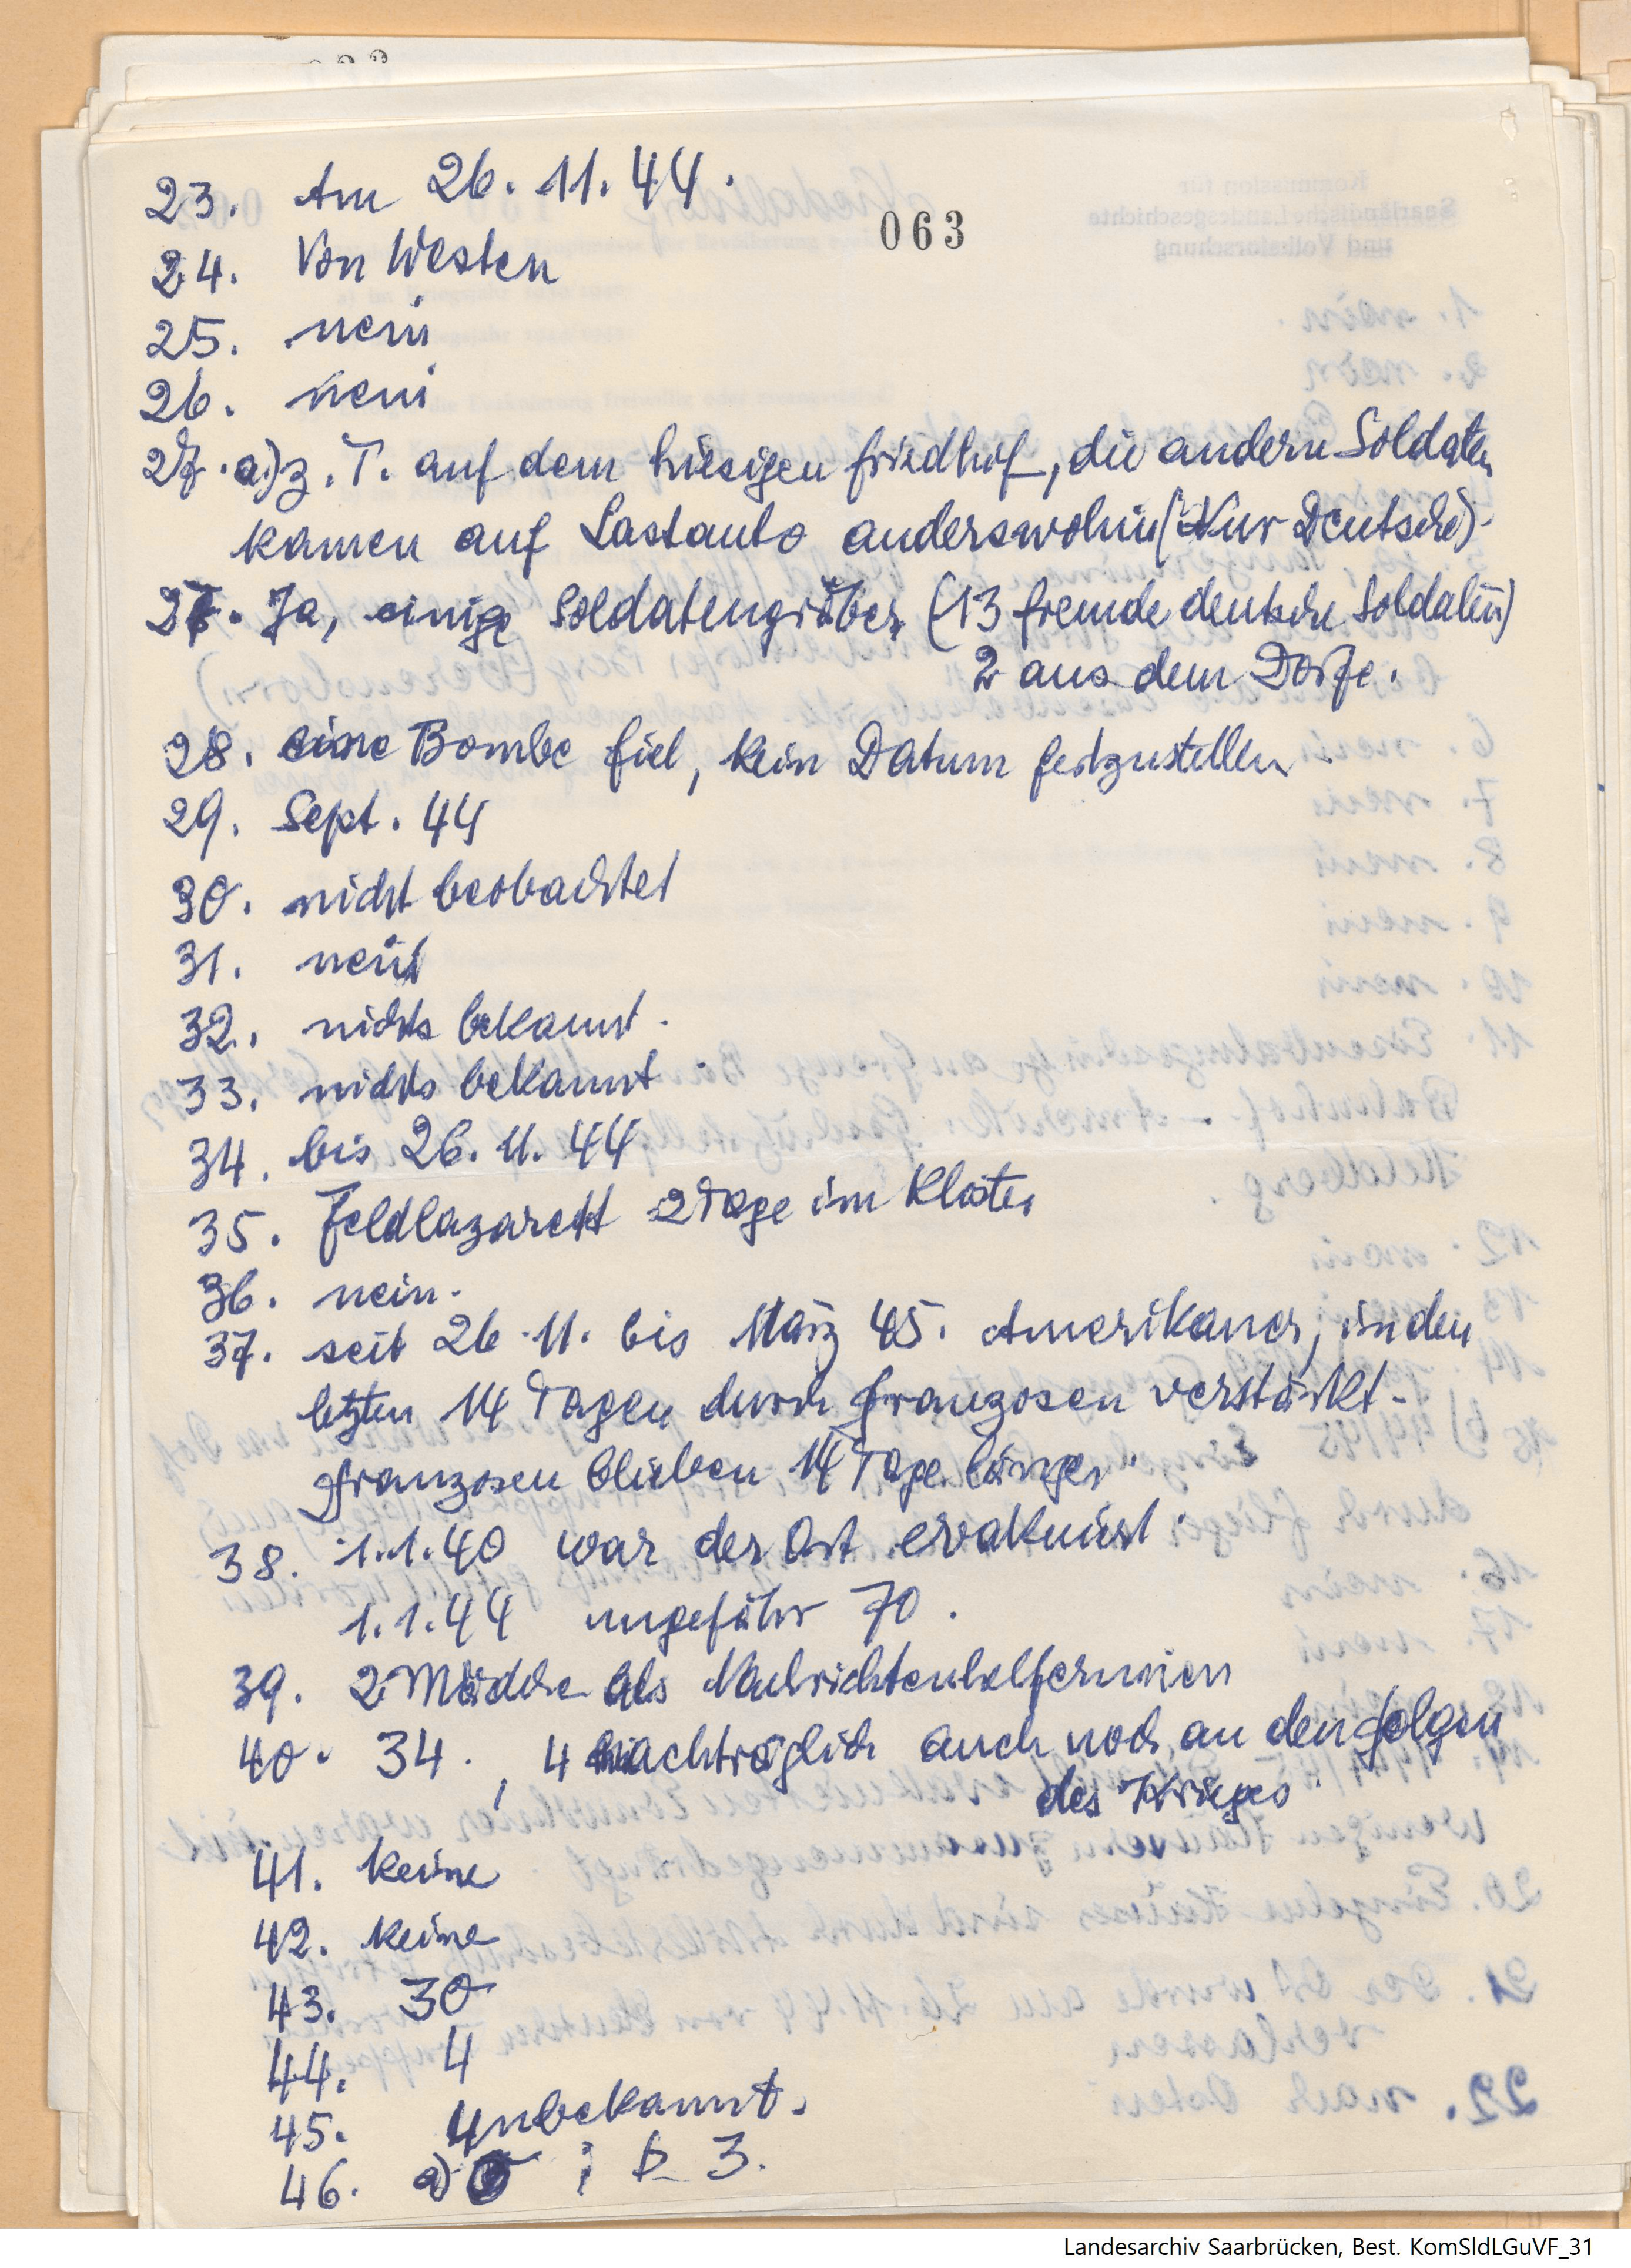 063
23. Am 26. 11. 44.
24. Von Westen
25. nein
26. nein
27. a) z. T. auf dem hiesigen Friedhof, die andern Soldaten
kamen auf Lastauto anderswohin (Nur Deutsche).
27. Ja, einige Soldatengräber (13 fremde deutsche Soldaten)
2 aus dem Dorfe.
28. eine Bombe fiel, kein Datum festzustellen
29. Sept. 44
30. nicht beobachtet
31. nein
32. nichts bekannt.
33. nichts bekannt.
34. bis 26. 11. 44
35. Feldlazarett 2 Tage im Kloster
36. nein.
37. seit 26. 11. bis März 45. Amerikaner, in den
letzten 14 Tagen durch Franzosen verstärkt-
Franzosen blieben 14 Tage länger
38. 1.1.40 war der Ort evakuiert.
1.1.44 ungefähr 70.
39. 2 Mädche als Nachrichtenhelferinnen
40. 34., 4 nachträglich auch noch an den Folgen
des Krieges
41. keine
42. keine
43. 30
44. 4
45. unbekannt.
46. a) ; b 3.
Landesarchiv Saarbrücken, Best. KomSldLGuVF_31